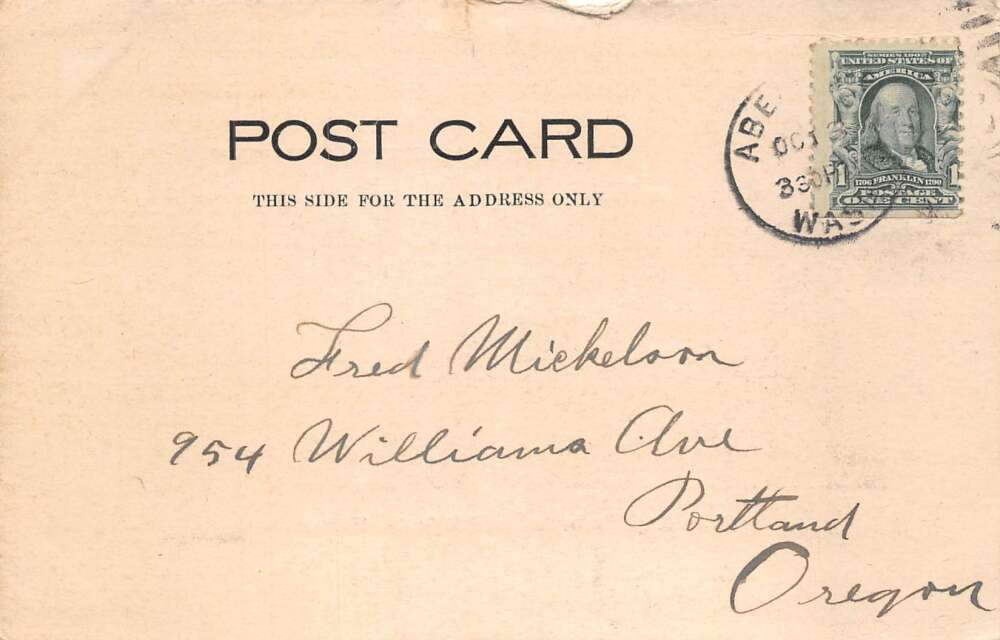 POST CARD
THIS SIDE FOR THE ADDRESS ONLY
ABE
OCT
WAS
UNITED STATES OF
AMERICA
1 1706 FRANKLIN 1790 1
POSTAGE
ONE CENT
Fred Mickelson
954 Williams Ave
Portland
Oregon